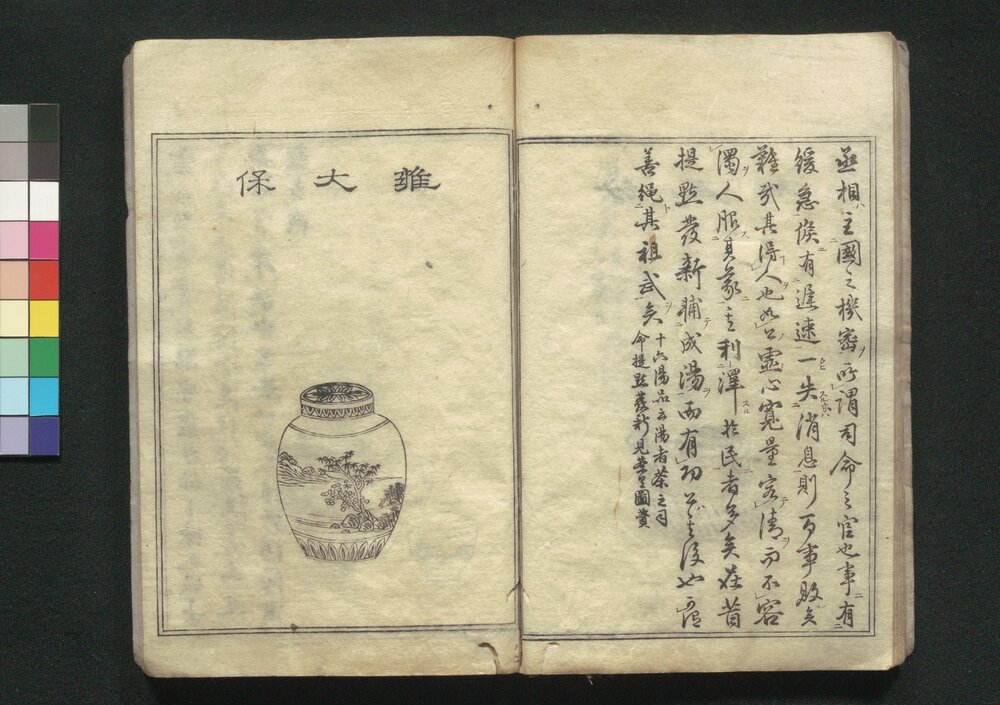 丞相主國之機密所謂司命之官也事有
緩急候有遲速一失消息則百事敗矣
難哉其得人也此公靈心寬量容清而不容
濁人服其義其利澤於民者多矣在昔
提點發新輔成湯而有功公其後也
善繩其祖武矣
十六湯品云湯者茶之司
命提點發新見茶具圖贊
雍大保